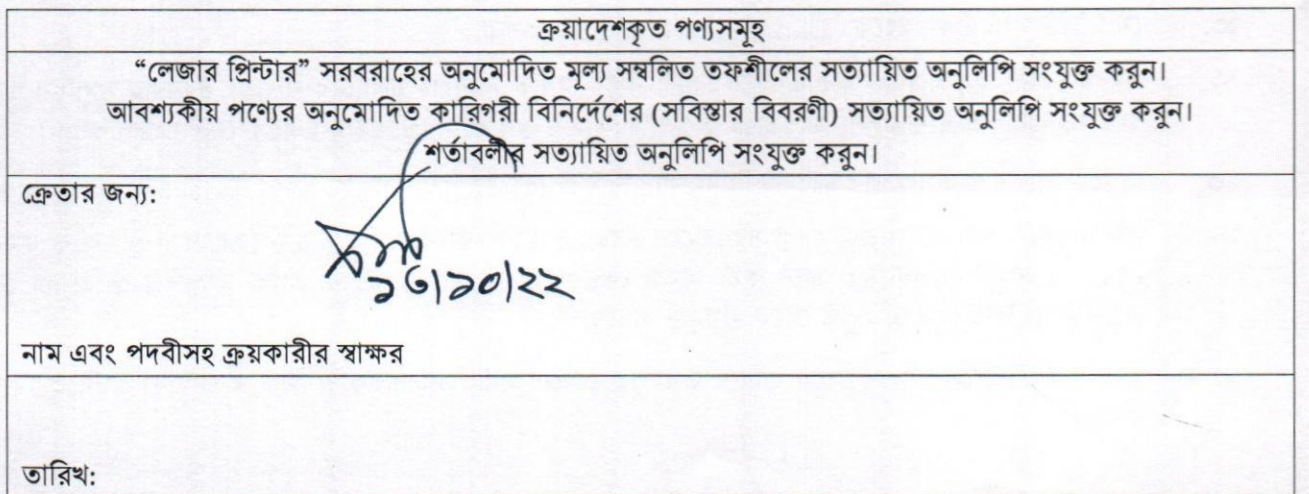 ক্রয়াদেশকৃত পণ্যসমূহ
“লেজার প্রিন্টার” সরবরাহের অনুমোদিত মূল্য সম্বলিত তফশীলের সত্যায়িত অনুলিপি সংযুক্ত করুন।
আবশ্যকীয় পণ্যের অনুমোদিত কারিগরী বিনির্দেশের (সবিস্তার বিবরণী) সত্যায়িত অনুলিপি সংযুক্ত করুন।
শর্তাবলীর সত্যায়িত অনুলিপি সংযুক্ত করুন।
ক্রেতার জন্য:
১৩/১০/২২
নাম এবং পদবীসহ ক্রয়কারীর স্বাক্ষর
তারিখ: